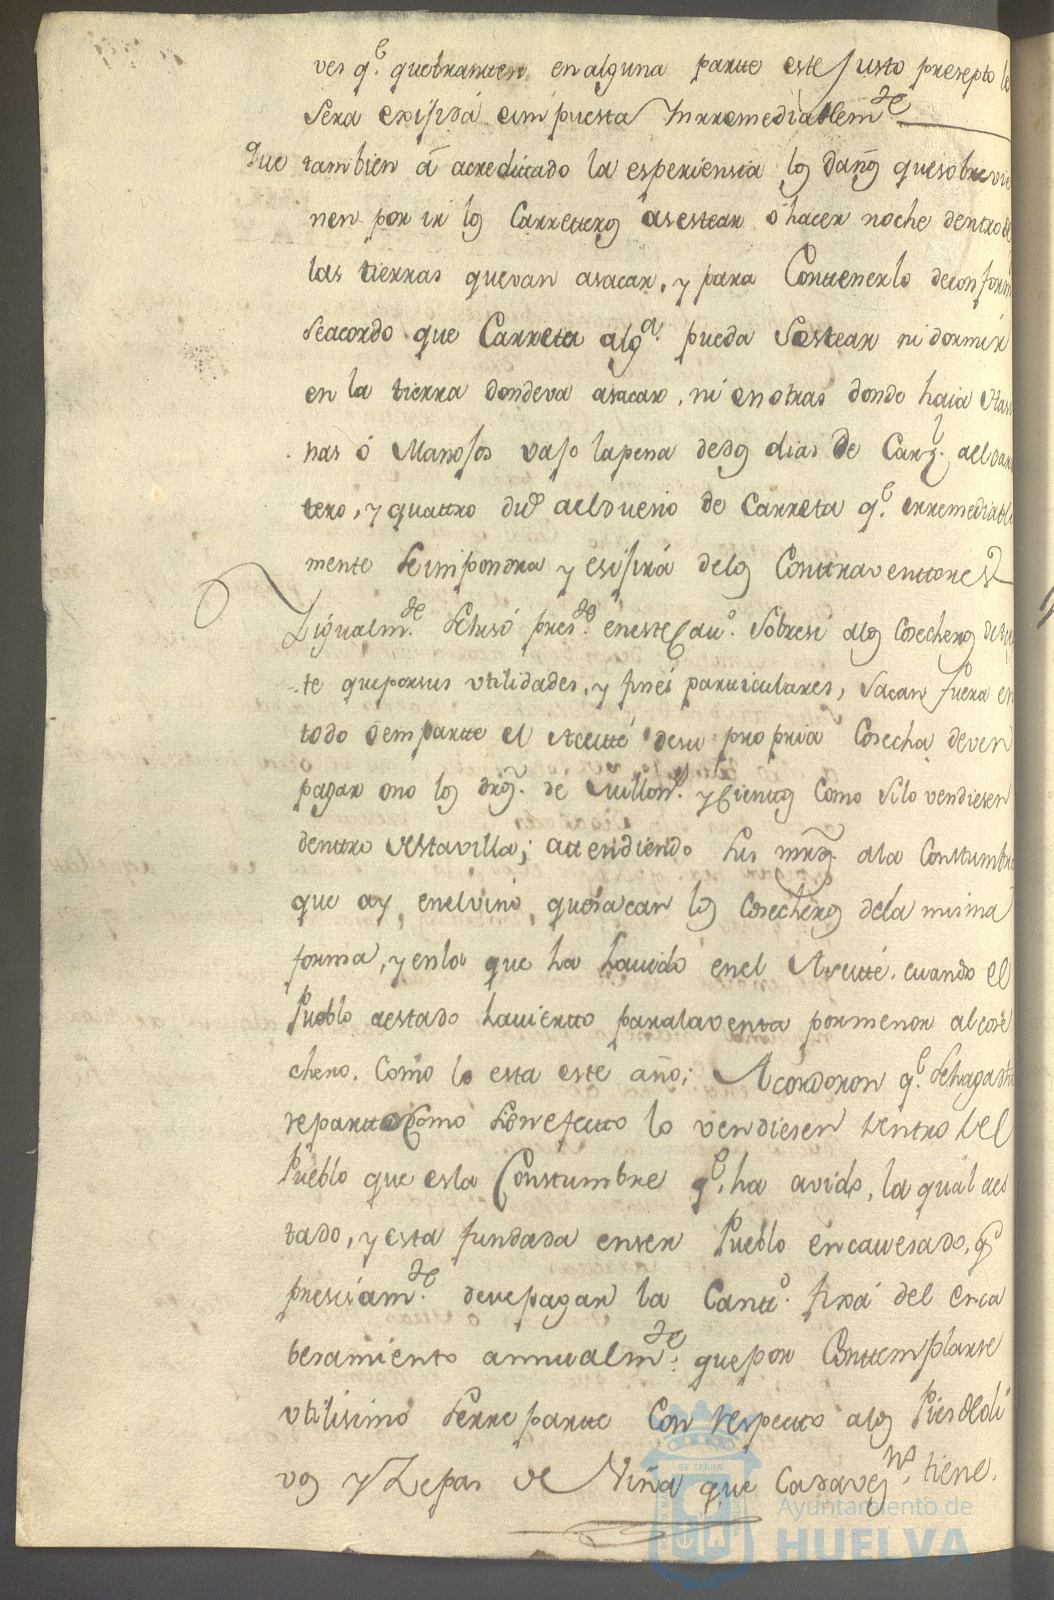 ves q.e quebranten en alguna parte este Justo presepto le
sera exijida e impuesta Inrremediablem.te
Que tambien á acredittado la esperiensia los daños que sobrevie
nen por ir los Carretteros asestear ó hacer noche dentro de
las tierras que van asacar, y para Conttenerlo de conform
se acordo que Carreta alg.a pueda Sestear ni dormir
en la tierra donde va asacar, ni en otras donde haia
nas ó Manojos vajo la pena de dos dias de Carz.l
tero, y quattro du.s ael dueño de Carreta q.e irremediable
mente se impondra y esijira de los Conttraventtores
Igualm.te se hisó pres.te en este Cau.o Sobre si a los Cosecheros de
te que por sus vtilidades, y fines particulares, Sacan fuera en
todo ó em partte el Aceitté de su propria Cosecha deven
pagar o no los dros. de Millon.s y Cientos Como si lo vendiesen
denttro de esta villa; attendiendo sus mrds. a la Constumbre
que ay en el vino que sacan los Cosecheros de la misma
forma, y en la que ha havido en el Aceitté cuando el
Pueblo a estado haviertto para la venta por menor al cose
chero, Como lo esta este año; Acordoron q.e se haga
repartto Como si en efectto lo vendiesen dentro del
Pueblo que es la Constumbre q.e ha avido, la qual a es
tado, y esta fundada en ser Pueblo encavesado, q.e
presisam.te deve pagar la Cantt.d fixa del enca
besamiento annualm.te que por Conttemplarse
vtilisimo se rrepartte Con respectto a los Pies de Oli
vos y Zepas de Viña que Cada vez.no tiene.
Ayuntamiento de
HUELVA